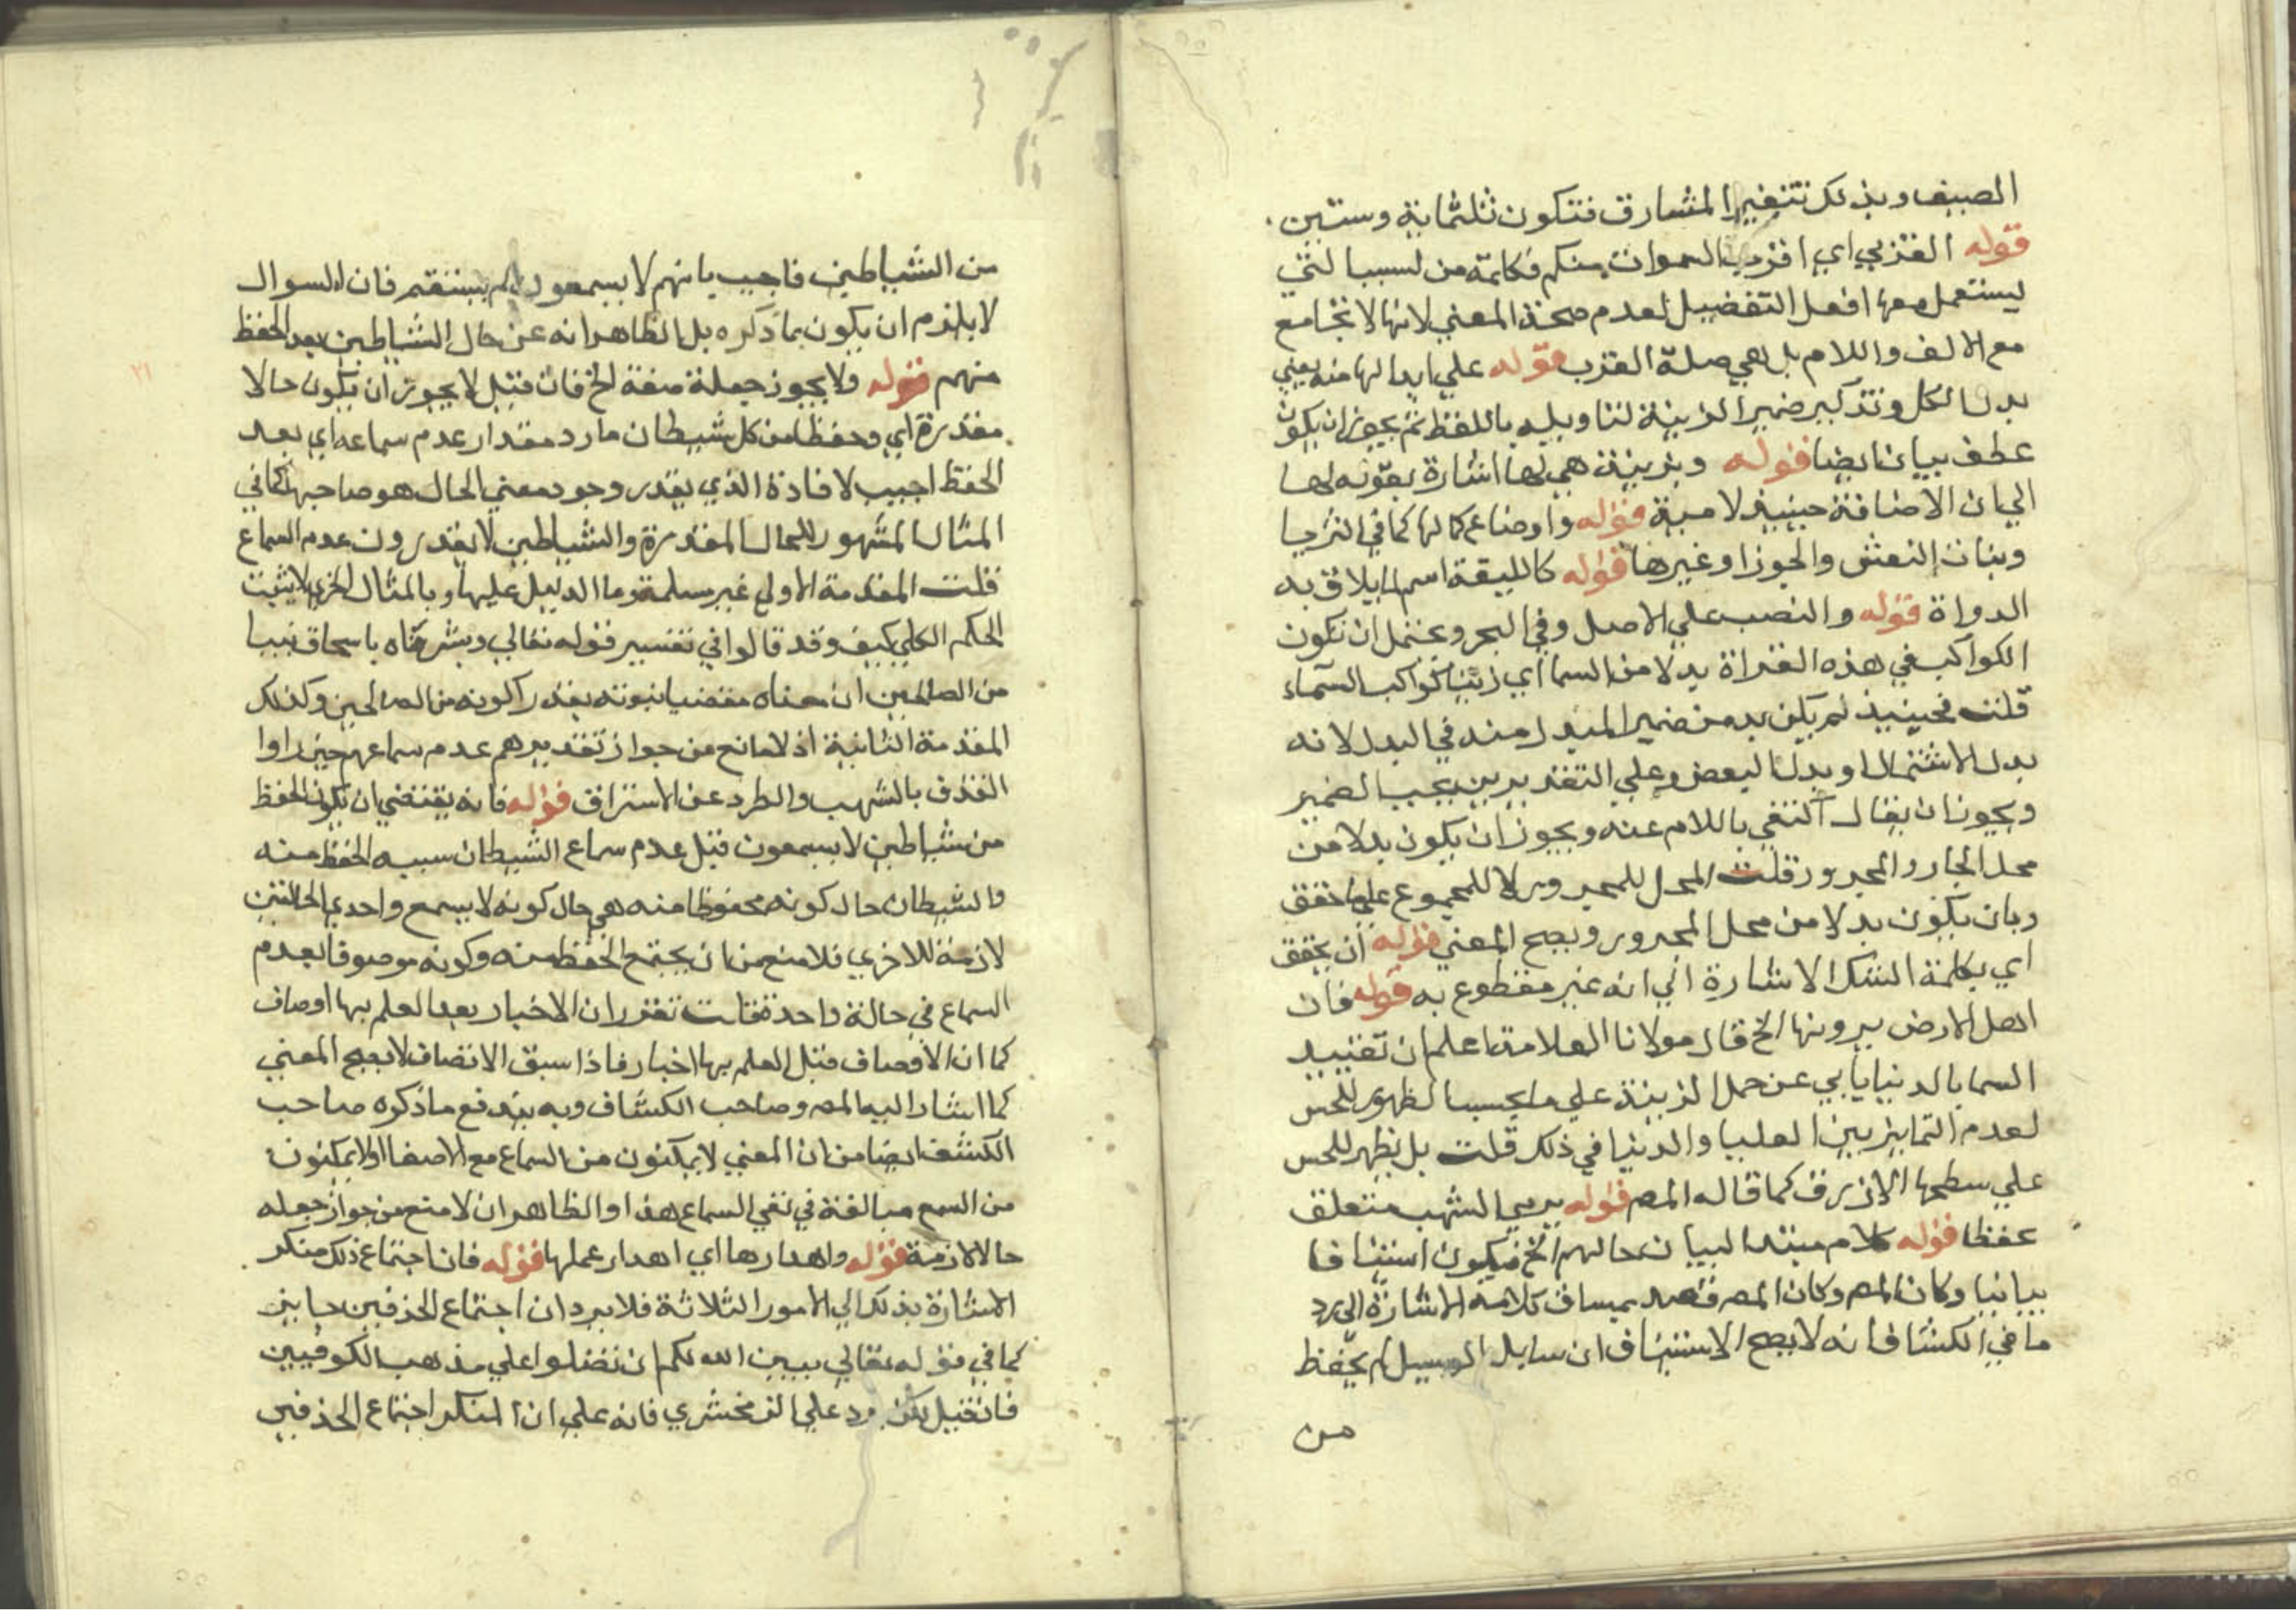 الصيف وبذلك تتغير المشارق فتكون ثلثماية وستين
قوله القربي اي اقرب السموات منكم فكلمة من ليست التي
يستعمل معها افعل التفضيل لعدم صحة المعني لانها لا تجامع
مع الالف واللام بل هي صلة القرب قوله علي ابدالها منه يعني
بدل الكل وتذكير ضمير الزينة لتاويله باللفظ ثم يجوز ان يكون
عطف بيان ايضا قوله وبزينة هي لها اشارة بقوله لها
الي ان الاضافة حينيذ لامية قوله واوضاعها كما في الثريا
وبنات النعش والجوزا وغيرها قوله كالليقة اسم لما يلاق به
الدواة قوله والنصب علي الاصل وفي البحر ويحتمل ان تكون
الكواكب في هذه القراة بدلا من السما اي زينا كواكب السماء
قلت فحينيذ لم يكن بد من ضمير المبدل منه في البدل لانه
بدل الاشتمال او بدل البعض وعلي التقديرين يجب الضمير
ويجوز ان يقال اكتفي باللام عنه ويجوز ان يكون بدلا من
محل الجار والمجرور قلت المحل للمجرور لا للمجموع علي ما حقق
وبان يكون بدلا من محل المجرور ويصح المعني قوله ان يحقق
اي بكلمة الشك الاشارة الي انه غير مقطوع به قوله فان
اهل الارض يرونها الخ قال مولانا العلامة اعلم ان تقييد
السما بالدنيا يابي عن حمل الزينة علي ما يحسب الظهور للحس
لعدم التمايز بين العليا والدنيا في ذلك قلت بل يظهر للحس
علي سطحها الازرق كما قاله المص قوله يرمي الشهب متعلق
بحفظا قوله كلام مبتدا لبيان حالهم الخ فيكون استينافا
بيانيا وكان المص وكان المص قصد بمساق كلامه الاشارة الي رد
ما في الكشاف انه لا يصح الاستيناف ان سايلا لو سيل لم يحفظ
من
من الشياطين فاجيب بانهم لا يسمعون لم يستقم فان السوال
لا يلزم ان يكون بما ذكره بل الظاهر انه عن حال الشياطين بعد الحفظ
منهم قوله ولا يجوز جعله صفة الخ فان قيل لا يجوز ان يكون حالا
مقدرة اي وحفظا من كل شيطان مارد مقدار عدم سماعه اي بعد
الحفظ اجيب لافادة الذي يقدر وجود معني الحال هو صاحبها كما في
المثال المشهور للحال المقدرة والشياطين لا يقدرون عدم السماع
قلت المقدمة الاولي غير مسلمة وما الدليل عليها وبالمثال الجزي لا يثبت
الحكم الكلي كيف وقد قالوا في تفسير قوله تعالي وبشرناه باسحاق نبيا
من الصالحين ان معناه مقضيا نبوته بقدر كونه من الصالحين وكذلك
المقدمة الثانية اذ لا مانع من جواز تقديرهم عدم سماعهم حين راوا
القذف بالشهب والطرد عن الاستراق قوله فانه يقتضي ان يكون الحفظ
من شياطين لا يسمعون قيل عدم سماع الشيطان سببه الحفظ منه
والشيطان حال كونه محفوظا منه هي حال كونه لا يسمع واحدي الحالتين
لازمة للاخري فلا منع من ان يجتمع الحفظ منه وكونه موصوفا بعدم
السماع في حالة واحدة قلت تقرر ان الاخبار بعد العلم بها اوصاف
كما ان الاوصاف قبل العلم بها اخبار فاذا سبق الاتصاف لا يصح المعني
كما اشار اليه المص وصاحب الكشاف وبه يندفع ما ذكره صاحب
الكشف ايضا من ان المعني لا يمكنون من السماع مع الاصغا او لا يمكنون
من السمع مبالغة في نفي السماع هذا والظاهر ان لا منع من جواز جعله
حالا لازمة قوله واهدارها اي اهدار عملها قوله فان اجتماع ذلك منكر
الاشارة بذلك الي الامور الثلاثة فلا يرد ان اجتماع الحذفين جايز
كما في قوله تعالي يبين الله لكم ان تضلوا علي مذهب الكوفيين
فان قيل لكن يرد علي الزمخشري فانه علي ان المنكر اجتماع الحذفين